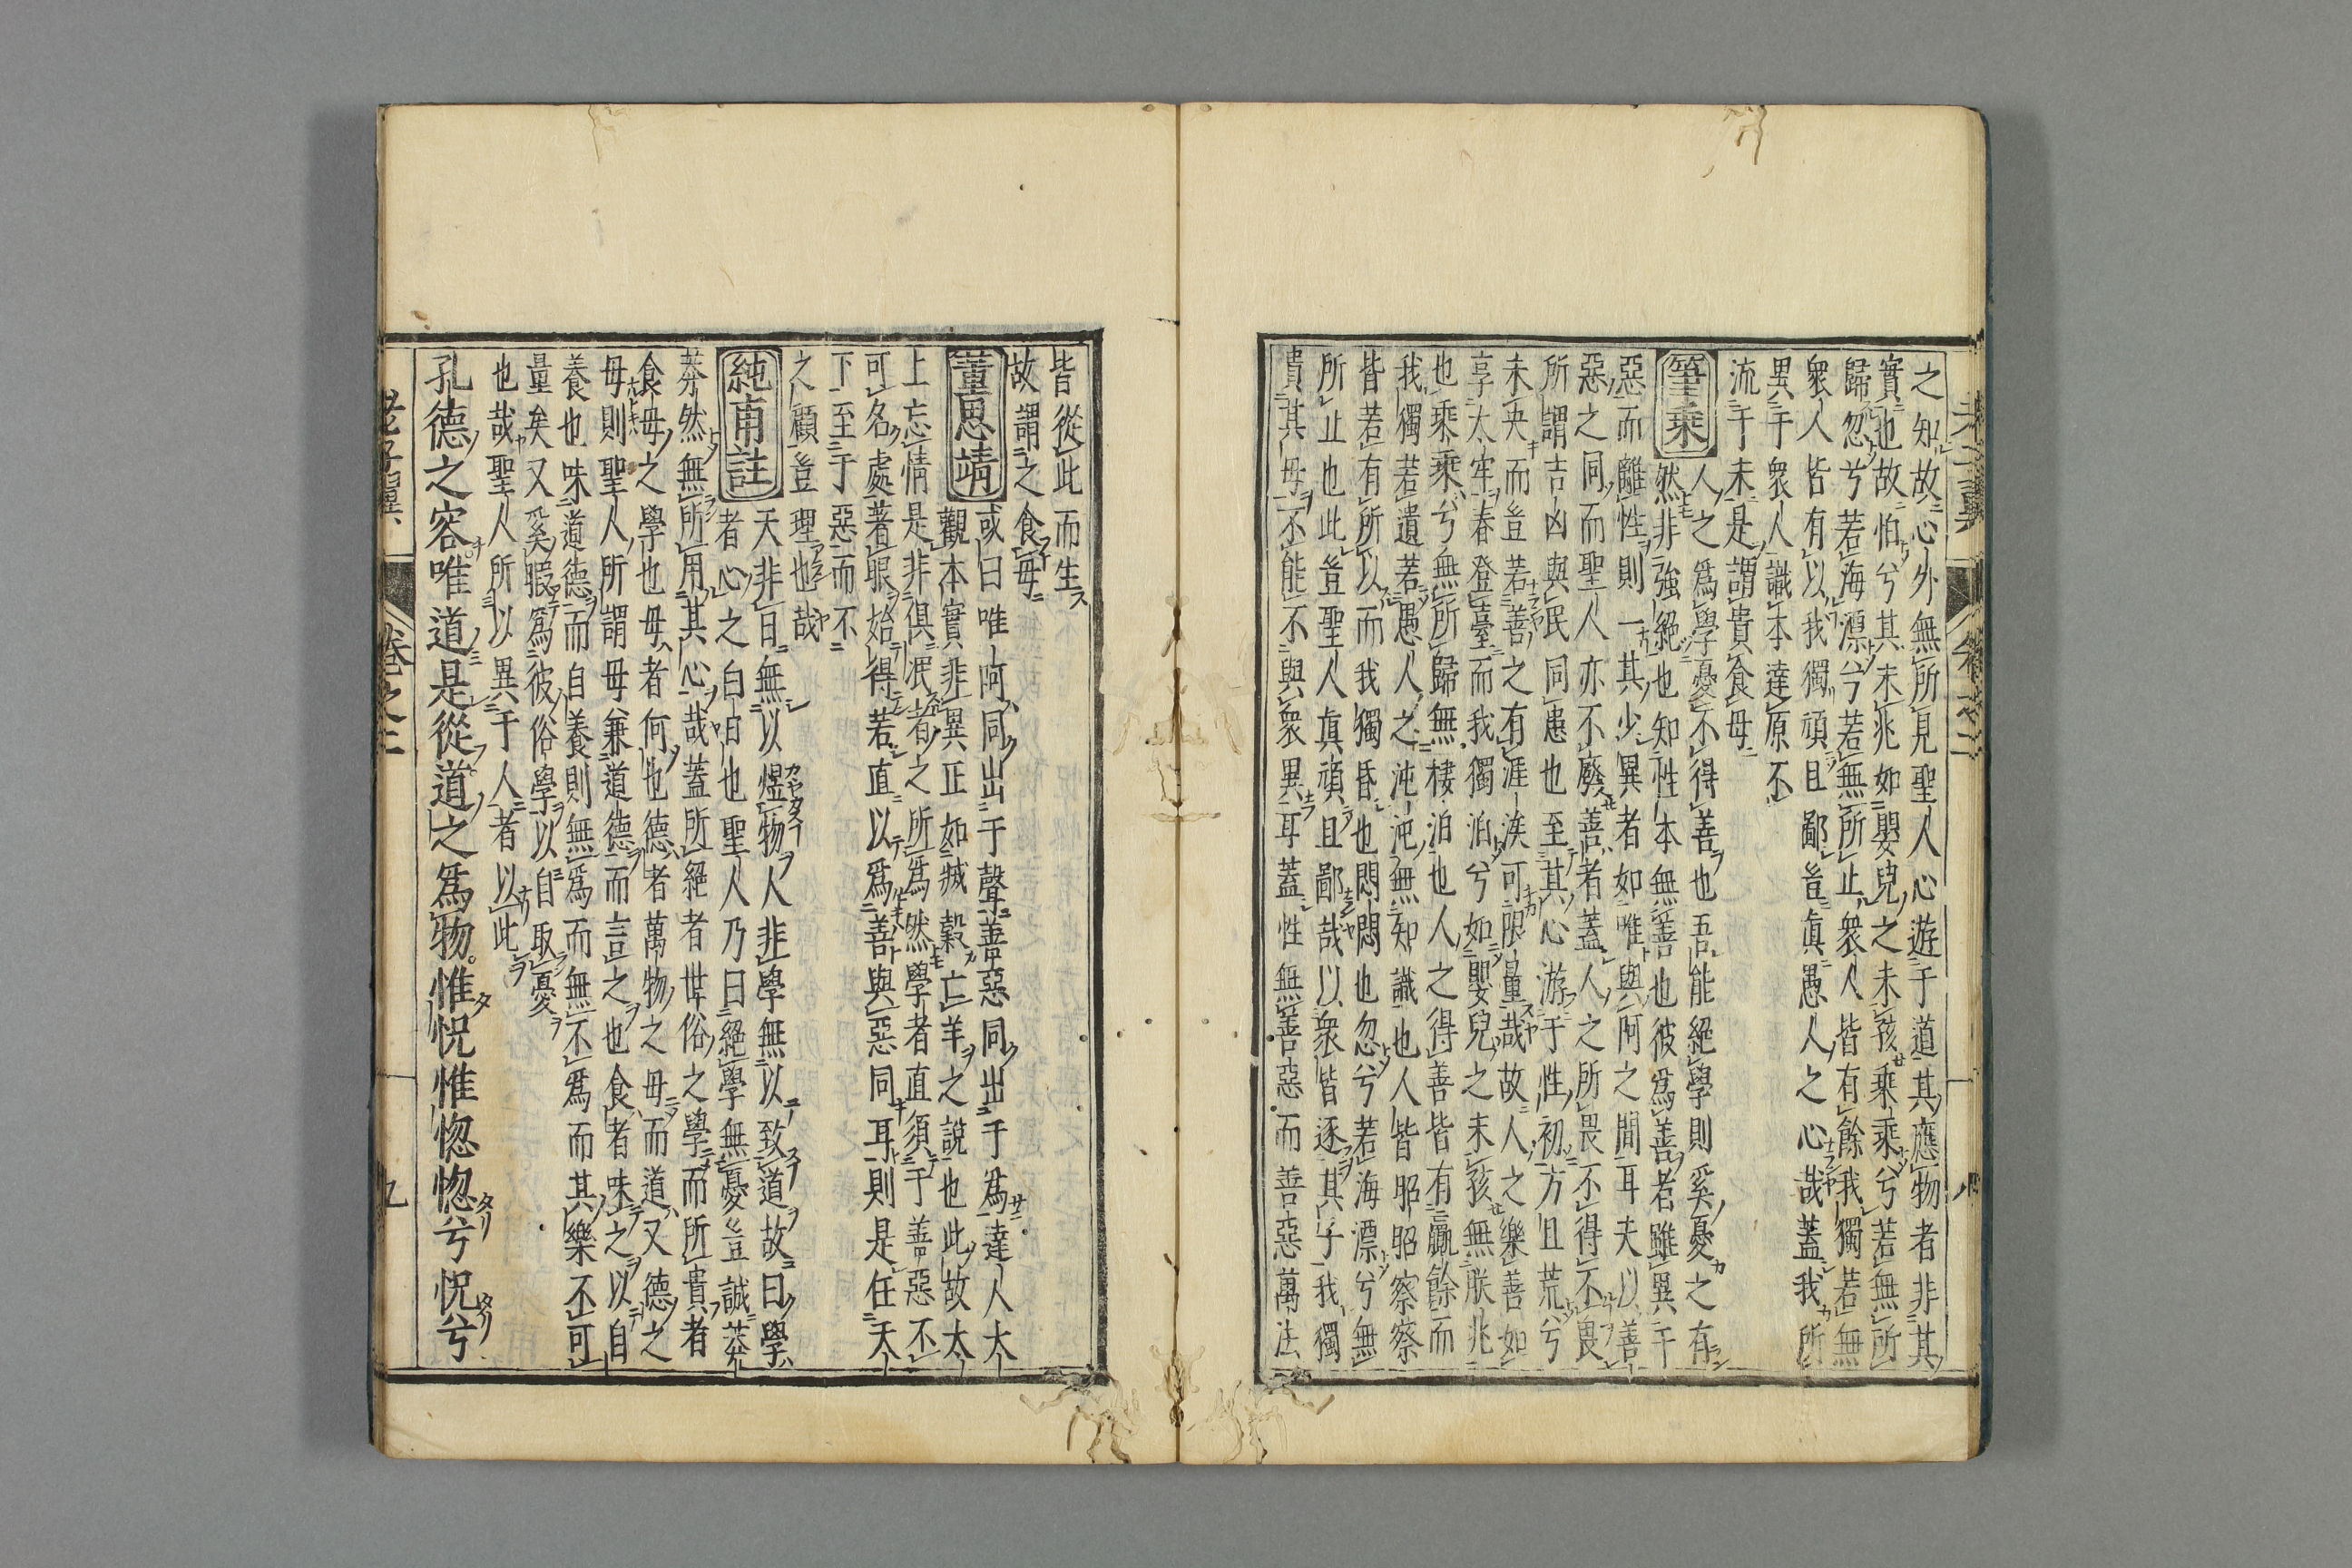 之知故心外無所見聖人心遊于道其應物者非其
實也故怕兮其未兆如嬰兒之未孩乘乘兮若無所
歸忽兮若海漂兮若無所止衆人皆有餘我獨若無
衆人皆有以我獨頑且鄙豈眞愚人之心哉蓋我所
異于衆人識本達原不
流于末是謂貴食母
筆乘
人之爲學憂不得善也吾能絕學則奚憂之有
然非強絕也知性本無善也彼爲善者雖異于
惡而離性則一其少異者如唯與阿之間耳夫以善
惡之同而聖人亦不廢善者蓋人之所畏不得不畏
所謂吉凶與民同患也至其心游于性初方且荒兮
未央而豈若善之有涯涘可限量哉故人之樂善如
享太牢春登臺而我獨泊兮如嬰兒之未孩無朕兆
也乘乘兮無所歸無棲泊也人之得善皆有贏餘而
我獨若遺若愚人之沌沌無知識也人皆昭昭察察
皆若有所以而我獨昏也悶悶也忽兮若海漂兮無
所止也此豈聖人眞頑且鄙哉以衆皆逐其子我獨
貴其母不能不與衆異耳蓋性無善惡而善惡萬法
皆從此而生
故謂之食母
董思靖
或曰唯阿同出于聲善惡同出于爲達人太
觀本實非異正如臧穀亡羊之說也此故太
上忘情是非俱泯者之所爲然學者直須于善惡不
可名處著眼始得若直以爲善與惡同耳則是任天
下至于惡而不
之顧豈理也哉
純甫註
天非日無以煜物人非學無以致道故曰學
者心之白日也聖人乃曰絕學無憂豈誠莽
莽然無所用其心哉蓋所絕者世俗之學而所貴者
食母之學也母者何也德者萬物之母而道又德之
母則聖人所謂母兼道德而言之也食者味之以自
養也味道德而自養則無爲而無不爲而其樂不可
量矣又奚暇爲彼俗學以自取憂
也哉聖人所以異于人者以此
孔德之容唯道是從道之爲物惟怳惟惚惚兮怳兮
老子翼
卷之二
九